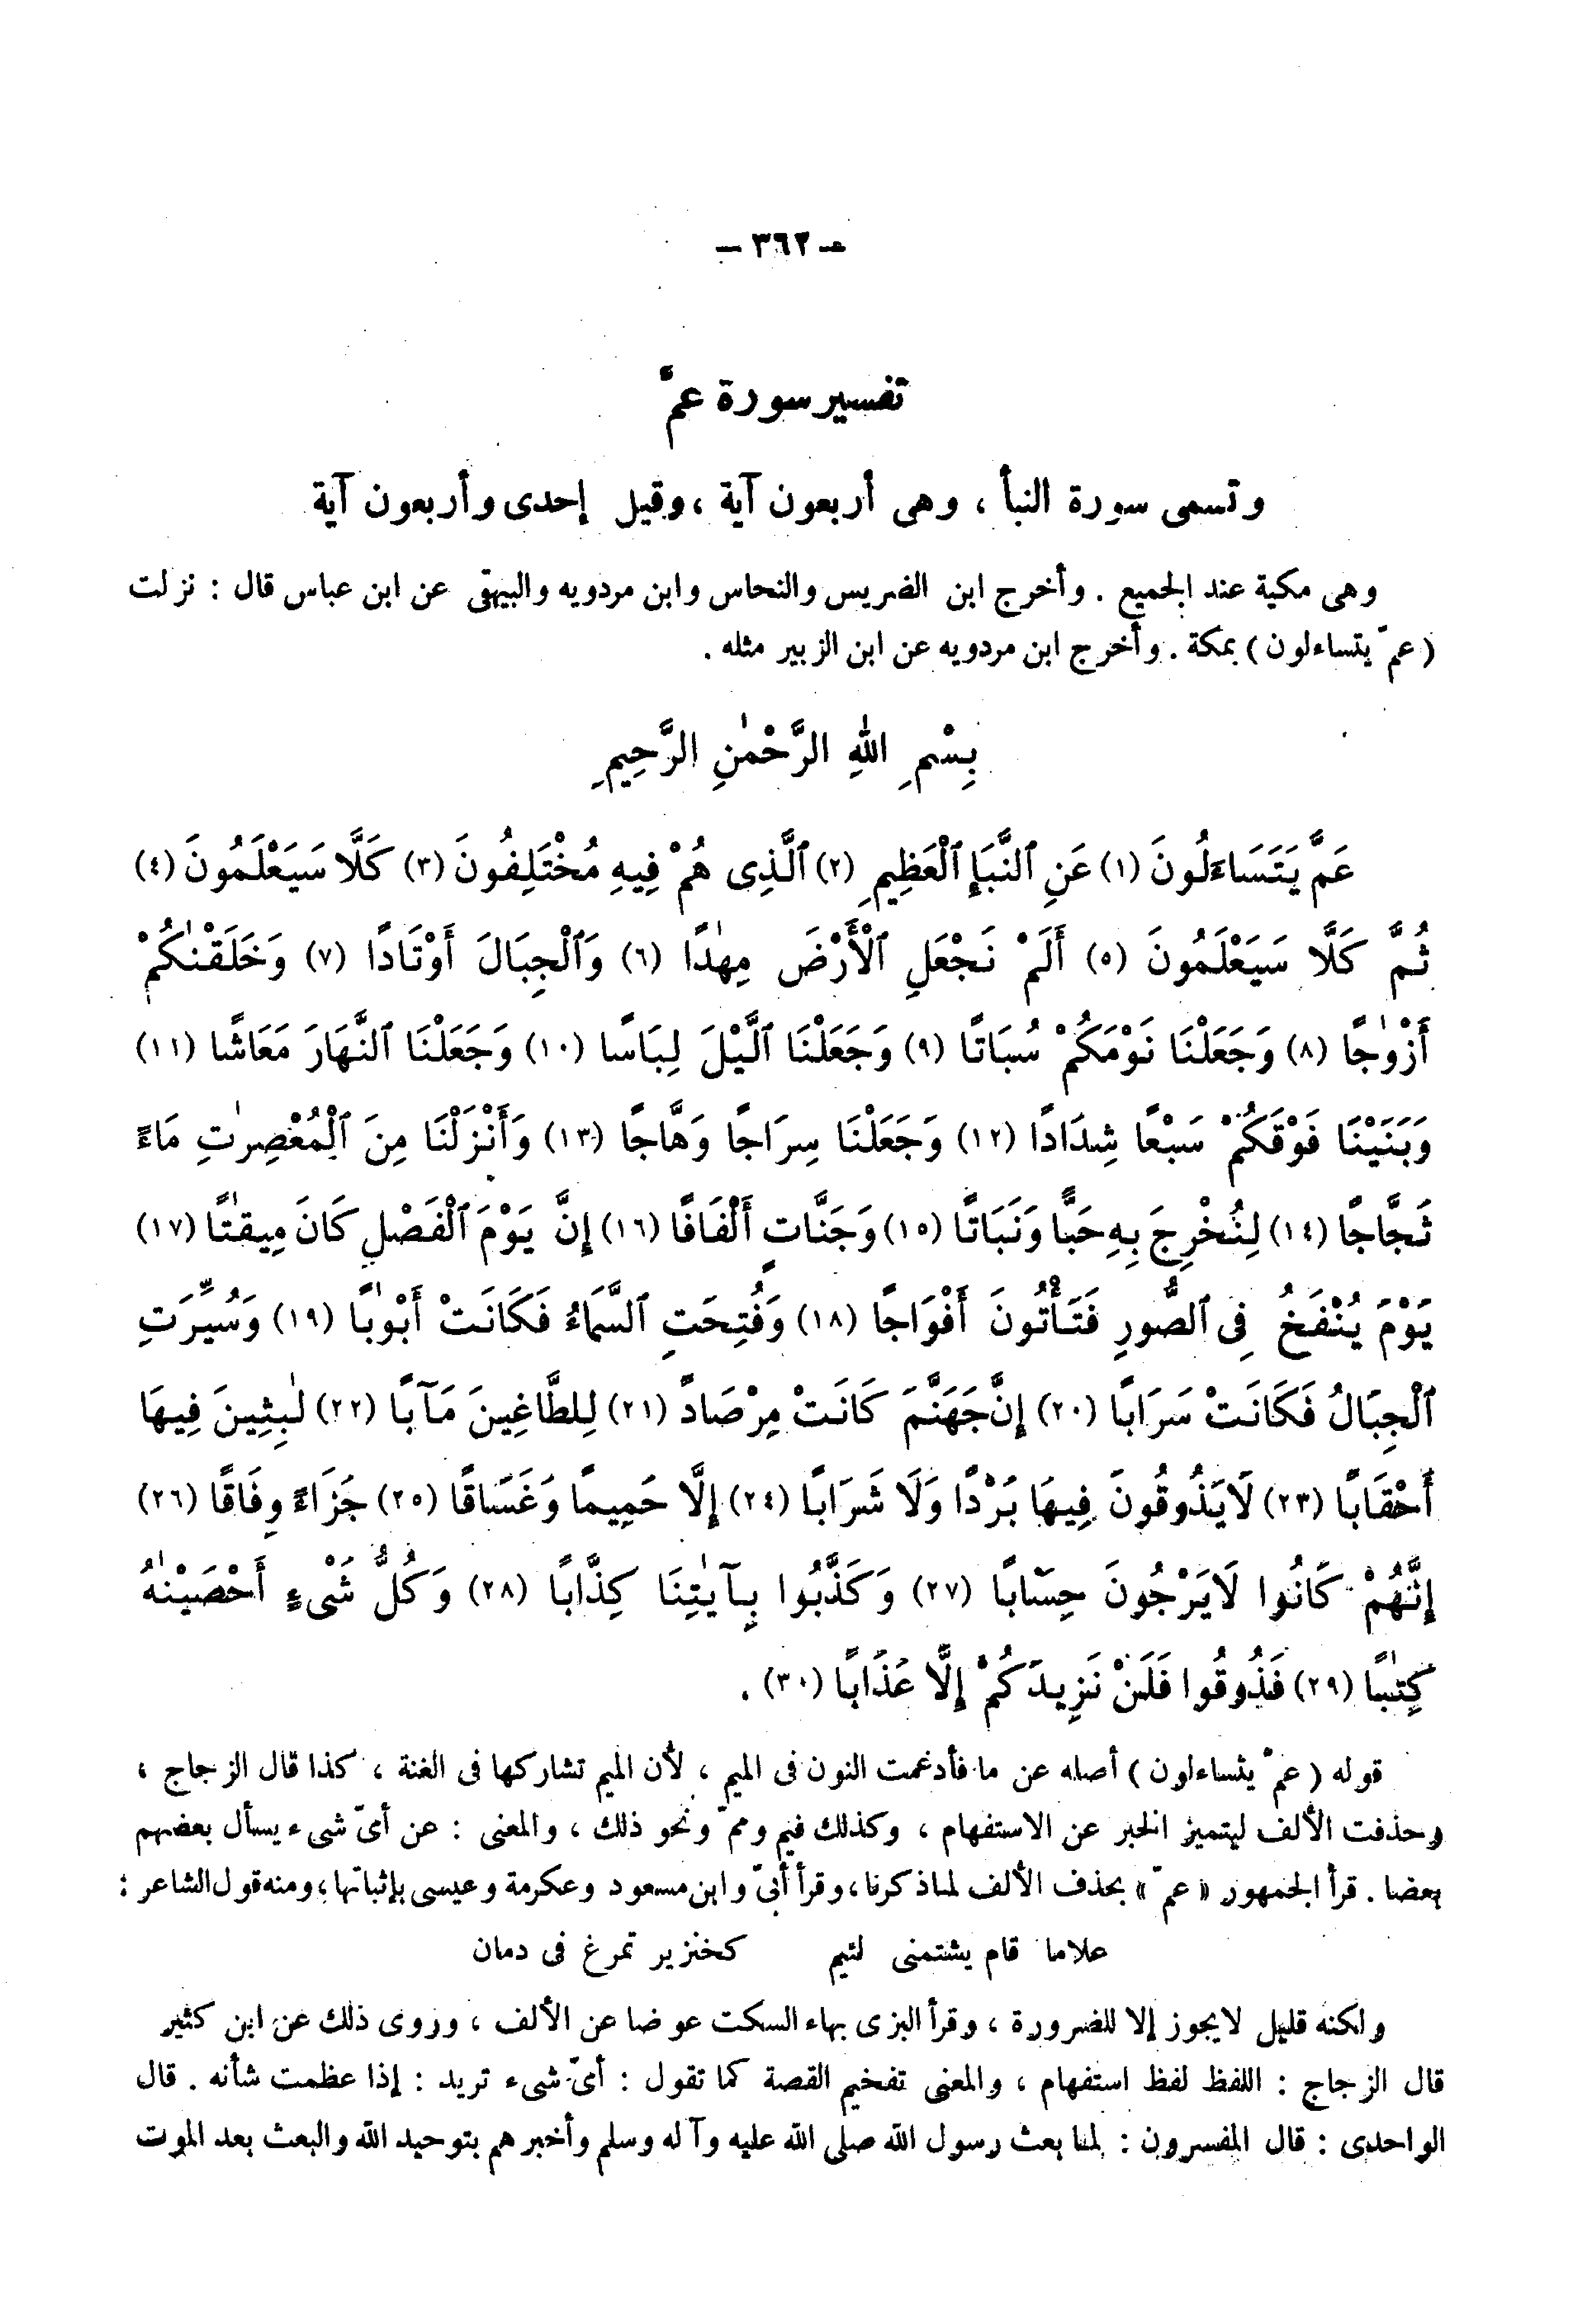 — ٣٦٢ —
تفسير سورة عمّ
وتسمى سورة النبأ ، وهى أربعون آية ، وقيل إحدى وأربعون آية
وهى مكية عند الجميع . وأخرج ابن الضريس والنحاس وابن مردويه والبيهقى عن ابن عباس قال : نزلت
( عمّ يتساءلون ) بمكة . وأخرج ابن مردويه عن ابن الزبير مثله .
بِسْمِ اللهِ الرَّحْمٰنِ الرَّحِيمِ
عَمَّ يَتَسَاءَلُونَ (١) عَنِ ٱلنَّبَإِ ٱلْعَظِيمِ (٢) ٱلَّذِى هُمْ فِيهِ مُخْتَلِفُونَ (٣) كَلَّا سَيَعْلَمُونَ (٤)
ثُمَّ كَلَّا سَيَعْلَمُونَ (٥) أَلَمْ نَجْعَلِ ٱلْأَرْضَ مِهٰدًا (٦) وَٱلْجِبَالَ أَوْتَادًا (٧) وَخَلَقْنٰكُمْ
أَزْوٰجًا (٨) وَجَعَلْنَا نَوْمَكُمْ سُبَاتًا (٩) وَجَعَلْنَا ٱلَّيْلَ لِبَاسًا (١٠) وَجَعَلْنَا ٱلنَّهَارَ مَعَاشًا (١١)
وَبَنَيْنَا فَوْقَكُمْ سَبْعًا شِدَادًا (١٢) وَجَعَلْنَا سِرَاجًا وَهَّاجًا (١٣) وَأَنْزَلْنَا مِنَ ٱلْمُعْصِرٰتِ مَاءً
ثَجَّاجًا (١٤) لِنُخْرِجَ بِهِ حَبًّا وَنَبَاتًا (١٥) وَجَنَّاتٍ أَلْفَافًا (١٦) إِنَّ يَوْمَ ٱلْفَصْلِ كَانَ مِيقٰتًا (١٧)
يَوْمَ يُنْفَخُ فِى ٱلصُّورِ فَتَأْتُونَ أَفْوَاجًا (١٨) وَفُتِحَتِ ٱلسَّمَاءُ فَكَانَتْ أَبْوٰبًا (١٩) وَسُيِّرَتِ
ٱلْجِبَالُ فَكَانَتْ سَرَابًا (٢٠) إِنَّ جَهَنَّمَ كَانَتْ مِرْصَادً (٢١) لِلطَّاغِينَ مَآبًا (٢٢) لٰبِثِينَ فِيهَا
أَحْقَابًا (٢٣) لَا يَذُوقُونَ فِيهَا بَرْدًا وَلَا شَرَابًا (٢٤) إِلَّا حَمِيمًا وَغَسَاقًا (٢٥) جَزَاءً وِفَاقًا (٢٦)
إِنَّهُمْ كَانُوا لَا يَرْجُونَ حِسَابًا (٢٧) وَكَذَّبُوا بِآيٰتِنَا كِذَّابًا (٢٨) وَكُلُّ شَىْءٍ أَحْصَيْنٰهُ
كِتٰبًا (٢٩) فَذُوقُوا فَلَنْ نَزِيدَكُمْ إِلَّا عَذَابًا (٣٠) .
قوله ( عمّ يتساءلون ) أصله عن ما فأدغمت النون فى الميم ، لأن الميم تشاركها فى الغنة ، كذا قال الزجاج ،
وحذفت الألف ليتميز الخبر عن الاستفهام ، وكذلك فيم وممّ ونحو ذلك ، والمعنى : عن أىّ شىء يسأل بعضهم
بعضا . قرأ الجمهور « عمّ » بحذف الألف لما ذكرنا ، وقرأ أبىّ وابن مسعود وعكرمة وعيسى بإثباتها ؛ ومنه قول الشاعر :
علاما قام يشتمنى لئيم كخنزير تمرغ فى دمان
ولكنه قليل لايجوز إلا للضرورة ، وقرأ البزى بهاء السكت عوضا عن الألف ، وروى ذلك عن ابن كثير
قال الزجاج : اللفظ لفظ استفهام ، والمعنى تفخيم القصة كما تقول : أىّ شىء تريد : إذا عظمت شأنه . قال
الواحدى : قال المفسرون : لما بعث رسول الله صلى الله عليه وآله وسلم وأخبرهم بتوحيد الله والبعث بعد الموت